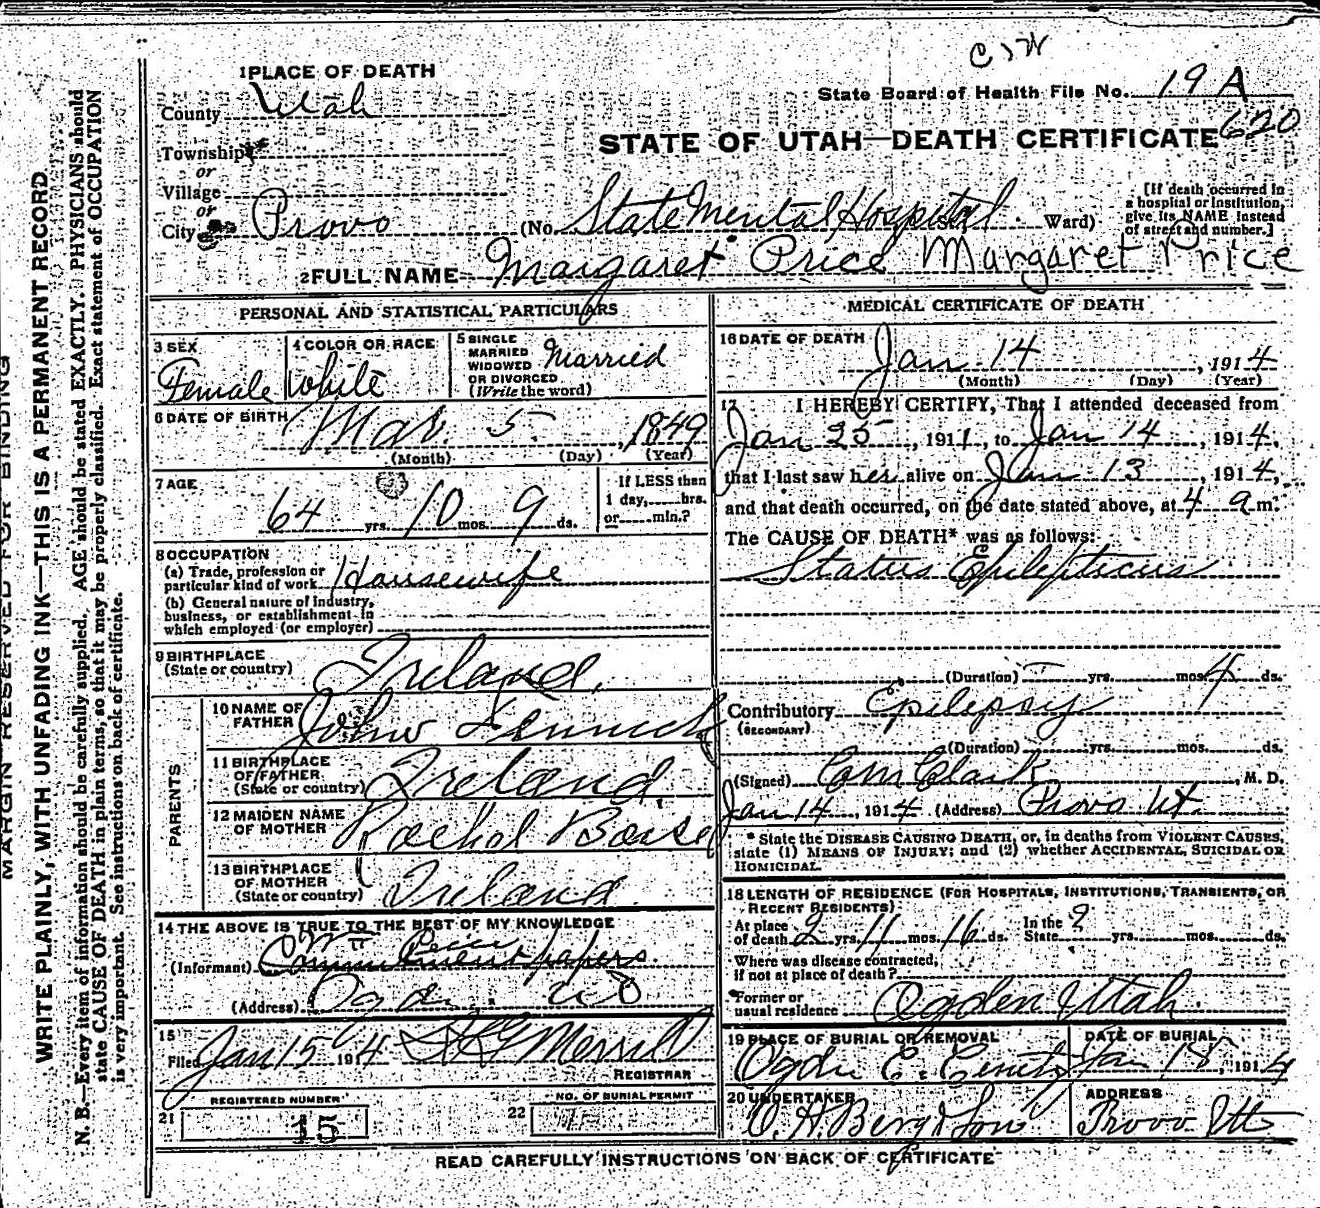 1 PLACE OF DEATH
County Utah
Township
or
Village
or
City Provo
State Board of Health File No. 19 A
620
STATE OF UTAH—DEATH CERTIFICATE
(No. State Mental Hospital St. Ward)
[If death occurred in
a hospital or institution,
give its NAME instead
of street and number.]
2 FULL NAME Margaret Price Margaret Price
PERSONAL AND STATISTICAL PARTICULARS
3 SEX
Female
4 COLOR OR RACE
White
5 SINGLE
MARRIED
WIDOWED
OR DIVORCED
(Write the word)
Married
6 DATE OF BIRTH
Mar. 5 , 1849
(Month) (Day) (Year)
7 AGE
64 yrs. 10 mos. 9 ds.
If LESS than
1 day, hrs.
or min.?
8 OCCUPATION
(a) Trade, profession or
particular kind of work Housewife
(b) General nature of industry,
business, or establishment in
which employed (or employer)
9 BIRTHPLACE
(State or country) Ireland.
PARENTS
10 NAME OF
FATHER John
11 BIRTHPLACE
OF FATHER
(State or country) Ireland.
12 MAIDEN NAME
OF MOTHER Rachel
13 BIRTHPLACE
OF MOTHER
(State or country) Ireland.
14 THE ABOVE IS TRUE TO THE BEST OF MY KNOWLEDGE
Wm Price
(Informant) Commitment papers
(Address)
15
Filed Jan 15 1914 Merrill
REGISTRAR
21
REGISTERED NUMBER
15
22
NO. OF BURIAL PERMIT
MEDICAL CERTIFICATE OF DEATH
16 DATE OF DEATH
Jan 14 , 1914
(Month) (Day) (Year)
17 I HEREBY CERTIFY, That I attended deceased from
Jan 25 , 1911, to Jan 14 , 1914,
that I last saw her alive on Jan 13 , 1914,
and that death occurred, on the date stated above, at 4 a m.
The CAUSE OF DEATH* was as follows:
Status Epilepticus
(Duration) yrs. mos. 4 ds.
Contributory Epilepsy
(SECONDARY)
(Duration) yrs. mos. ds.
(Signed) Clark , M. D.
Jan 14 , 1914 (Address) Provo Ut.
* State the DISEASE CAUSING DEATH, or, in deaths from VIOLENT CAUSES,
state (1) MEANS OF INJURY; and (2) whether ACCIDENTAL, SUICIDAL OR
HOMICIDAL.
18 LENGTH OF RESIDENCE (FOR HOSPITALS, INSTITUTIONS, TRANSIENTS, OR
RECENT RESIDENTS)
At place
of death 2 yrs. 11 mos. 16 ds.
In the
State 2 yrs. mos. ds.
Where was disease contracted,
if not at place of death?
Former or
usual residence Ogden Utah.
19 PLACE OF BURIAL OR REMOVAL
Ogden
DATE OF BURIAL
Jan 18, 1914
20 UNDERTAKER
O. H. Berg & Son
ADDRESS
Provo
READ CAREFULLY INSTRUCTIONS ON BACK OF CERTIFICATE
MARGIN RESERVED FOR BINDING
WRITE PLAINLY, WITH UNFADING INK—THIS IS A PERMANENT RECORD
N. B.—Every item of information should be carefully supplied. AGE should be stated EXACTLY. PHYSICIANS should
state CAUSE OF DEATH in plain terms, so that it may be properly classified. Exact statement of OCCUPATION
is very important. See instructions on back of certificate.